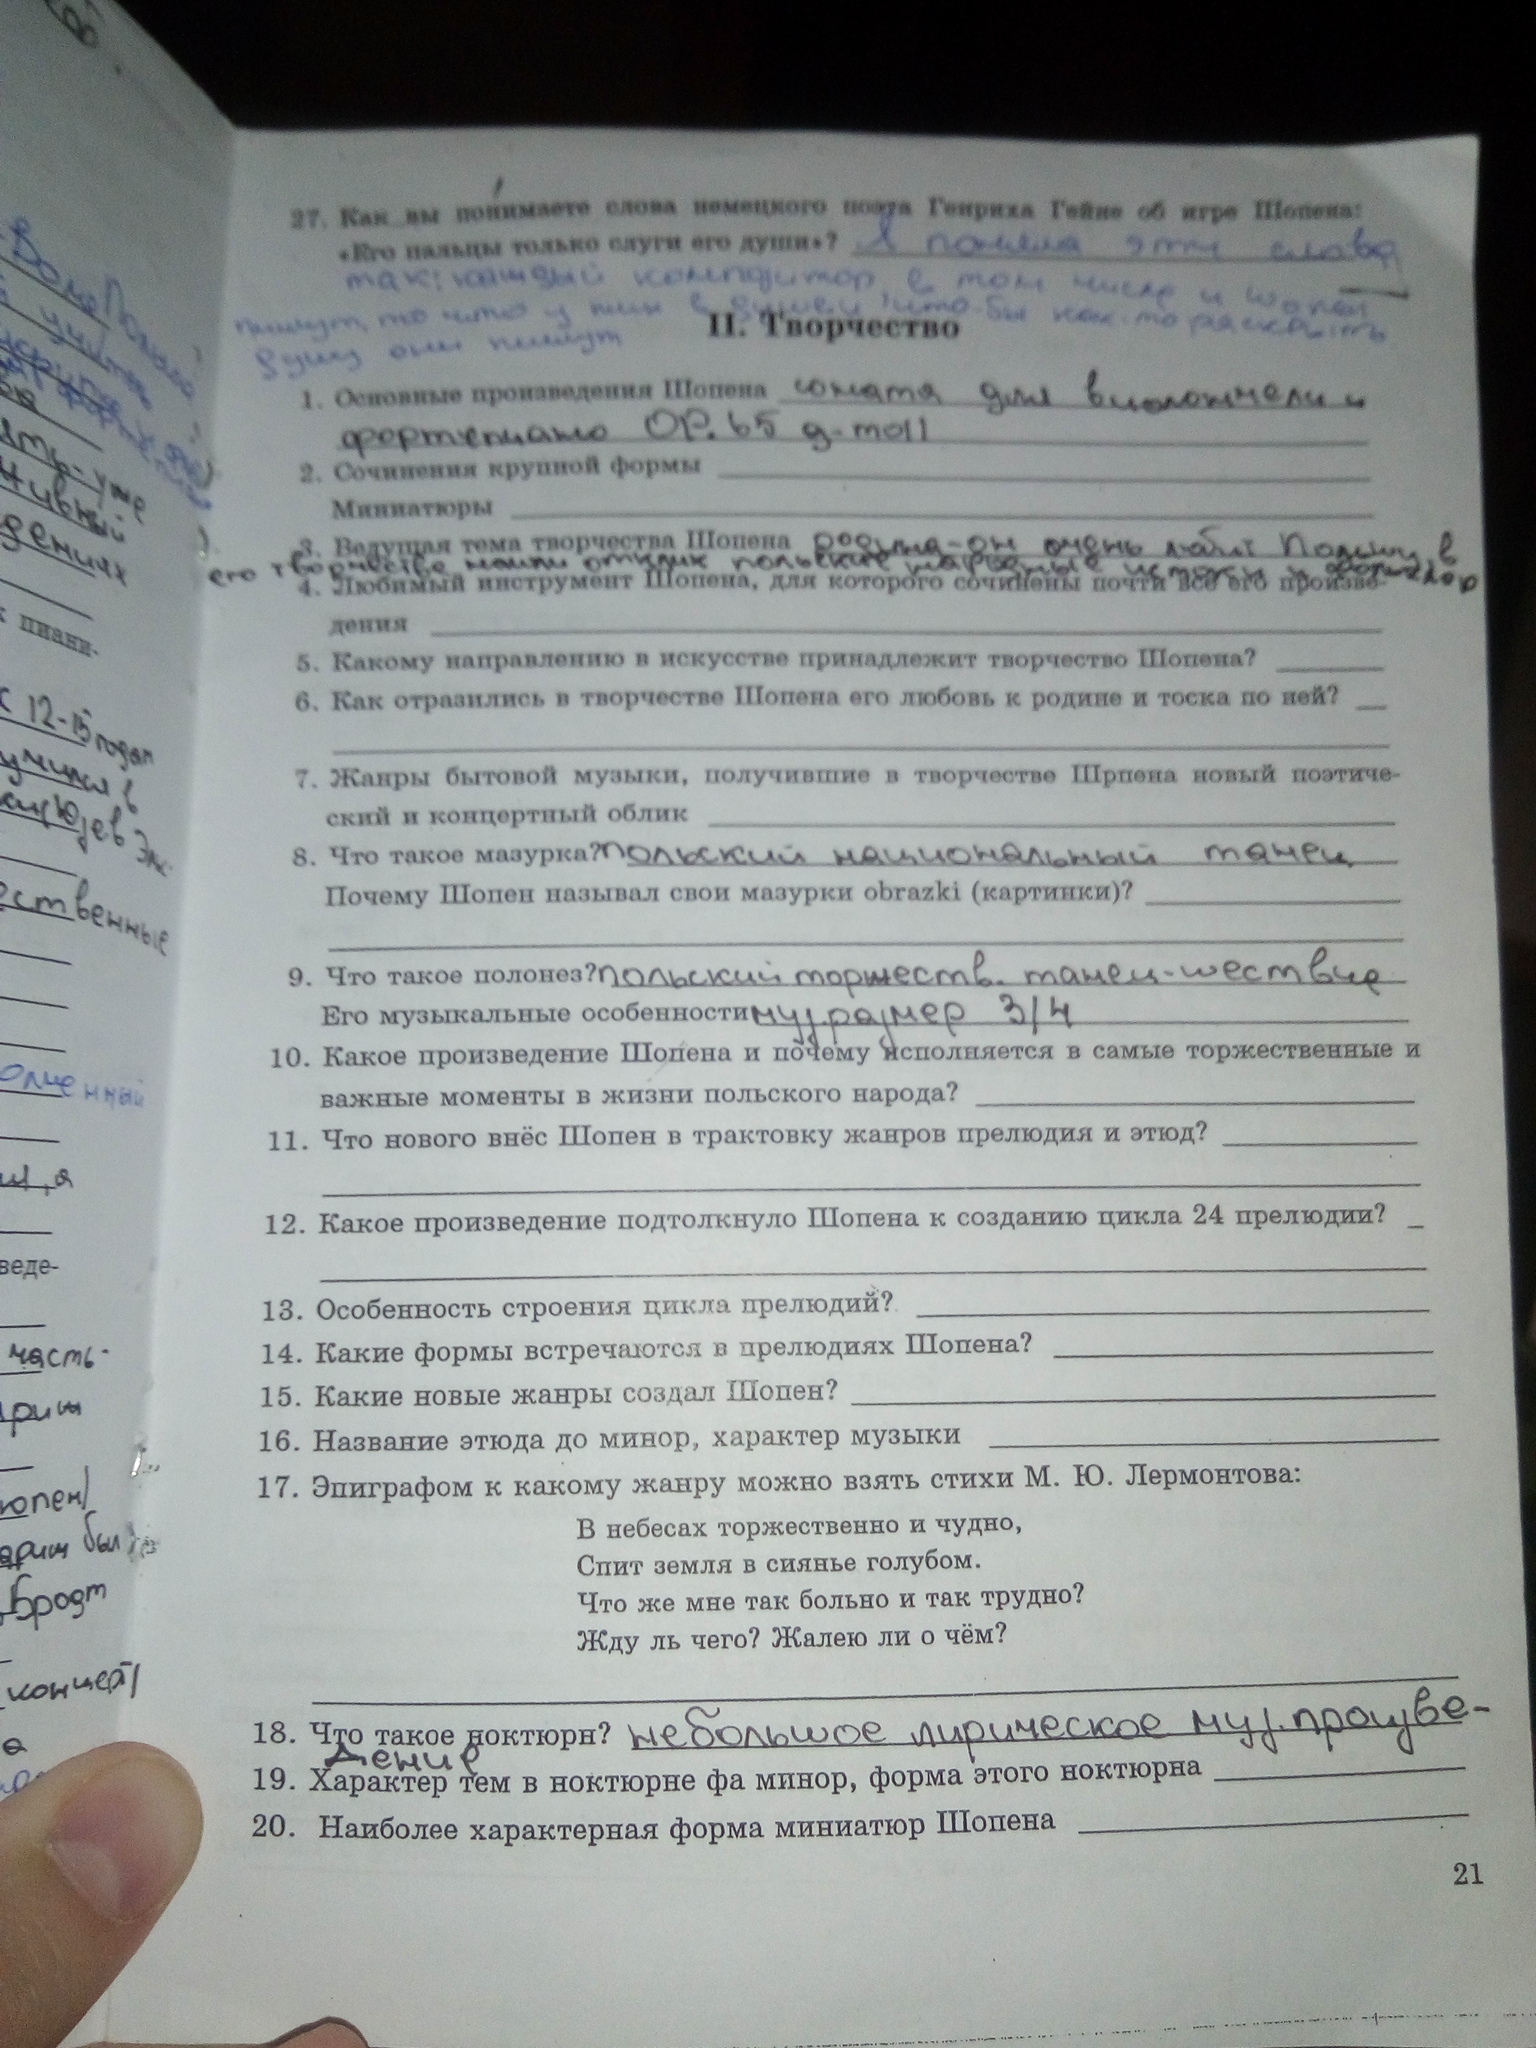 27. Как вы понимаете слова немецкого поэта Генриха Гейне об игре Шопена:
«Его пальцы только слуги его души»? Я поняла эти слова
так: каждый композитор, в том числе и Шопен
пишут, то что у них в душе и что-бы как-то раскрыть
душу они пишут
II. Творчество
1. Основные произведения Шопена соната для виолончели и
фортепиано ОР. 65 g-moll
2. Сочинения крупной формы
Миниатюры
3. Ведущая тема творчества Шопена родина-он очень любит Польшу, в
его творчестве нашли отклик польские народные истоки и фольклор
4. Любимый инструмент Шопена, для которого сочинены почти все его произве-
дения
5. Какому направлению в искусстве принадлежит творчество Шопена?
6. Как отразились в творчестве Шопена его любовь к родине и тоска по ней?
7. Жанры бытовой музыки, получившие в творчестве Шрпена новый поэтиче-
ский и концертный облик
8. Что такое мазурка? Польский национальный танец
Почему Шопен называл свои мазурки obrazki (картинки)?
9. Что такое полонез? Польский торжеств. танец-шествие
Его музыкальные особенности муз. размер 3/4
10. Какое произведение Шопена и почему исполняется в самые торжественные и
важные моменты в жизни польского народа?
11. Что нового внёс Шопен в трактовку жанров прелюдия и этюд?
12. Какое произведение подтолкнуло Шопена к созданию цикла 24 прелюдии?
13. Особенность строения цикла прелюдий?
14. Какие формы встречаются в прелюдиях Шопена?
15. Какие новые жанры создал Шопен?
16. Название этюда до минор, характер музыки
17. Эпиграфом к какому жанру можно взять стихи М. Ю. Лермонтова:
В небесах торжественно и чудно,
Спит земля в сиянье голубом.
Что же мне так больно и так трудно?
Жду ль чего? Жалею ли о чём?
18. Что такое ноктюрн? небольшое лирическое муз. произве-
дение
19. Характер тем в ноктюрне фа минор, форма этого ноктюрна
20. Наиболее характерная форма миниатюр Шопена
21